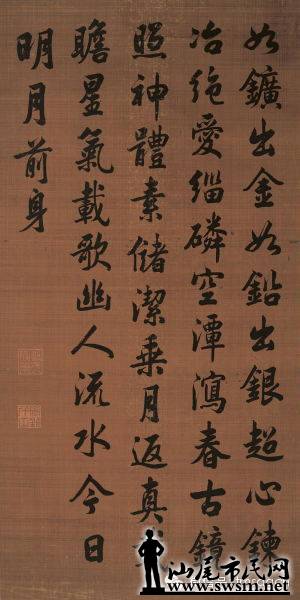 如鑛出金如鉛出銀超心鍊
冶絶愛緇磷空潭瀉春古鏡
照神體素儲潔乗月返真
瞻星氣載歌幽人流水今日
明月前身
汕尾市民网
www.swsm.net